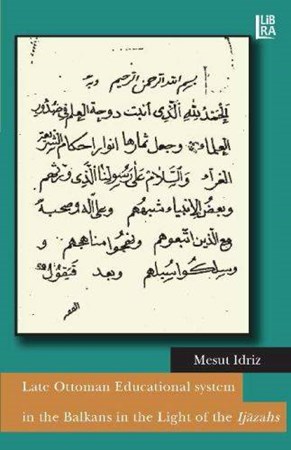 LiBRA
بسم الله الرحمن الرحيم وبه
الحمد لله الذي أنبت دوحة العلم في صدور
العلماء وجعل ثمارها انوار احكام الشريعة
الغراء والسلام على رسولنا الذي ورثهم
وبعض الانبياء شبههم وعلى آله وصحبه
مع الذين اتبعوهم ونهجوا مناهجهم و
وسلكوا سبيلهم وبعد فيقول
Mesut Idriz
Late Ottoman Educational system
in the Balkans in the Light of the Ijāzahs